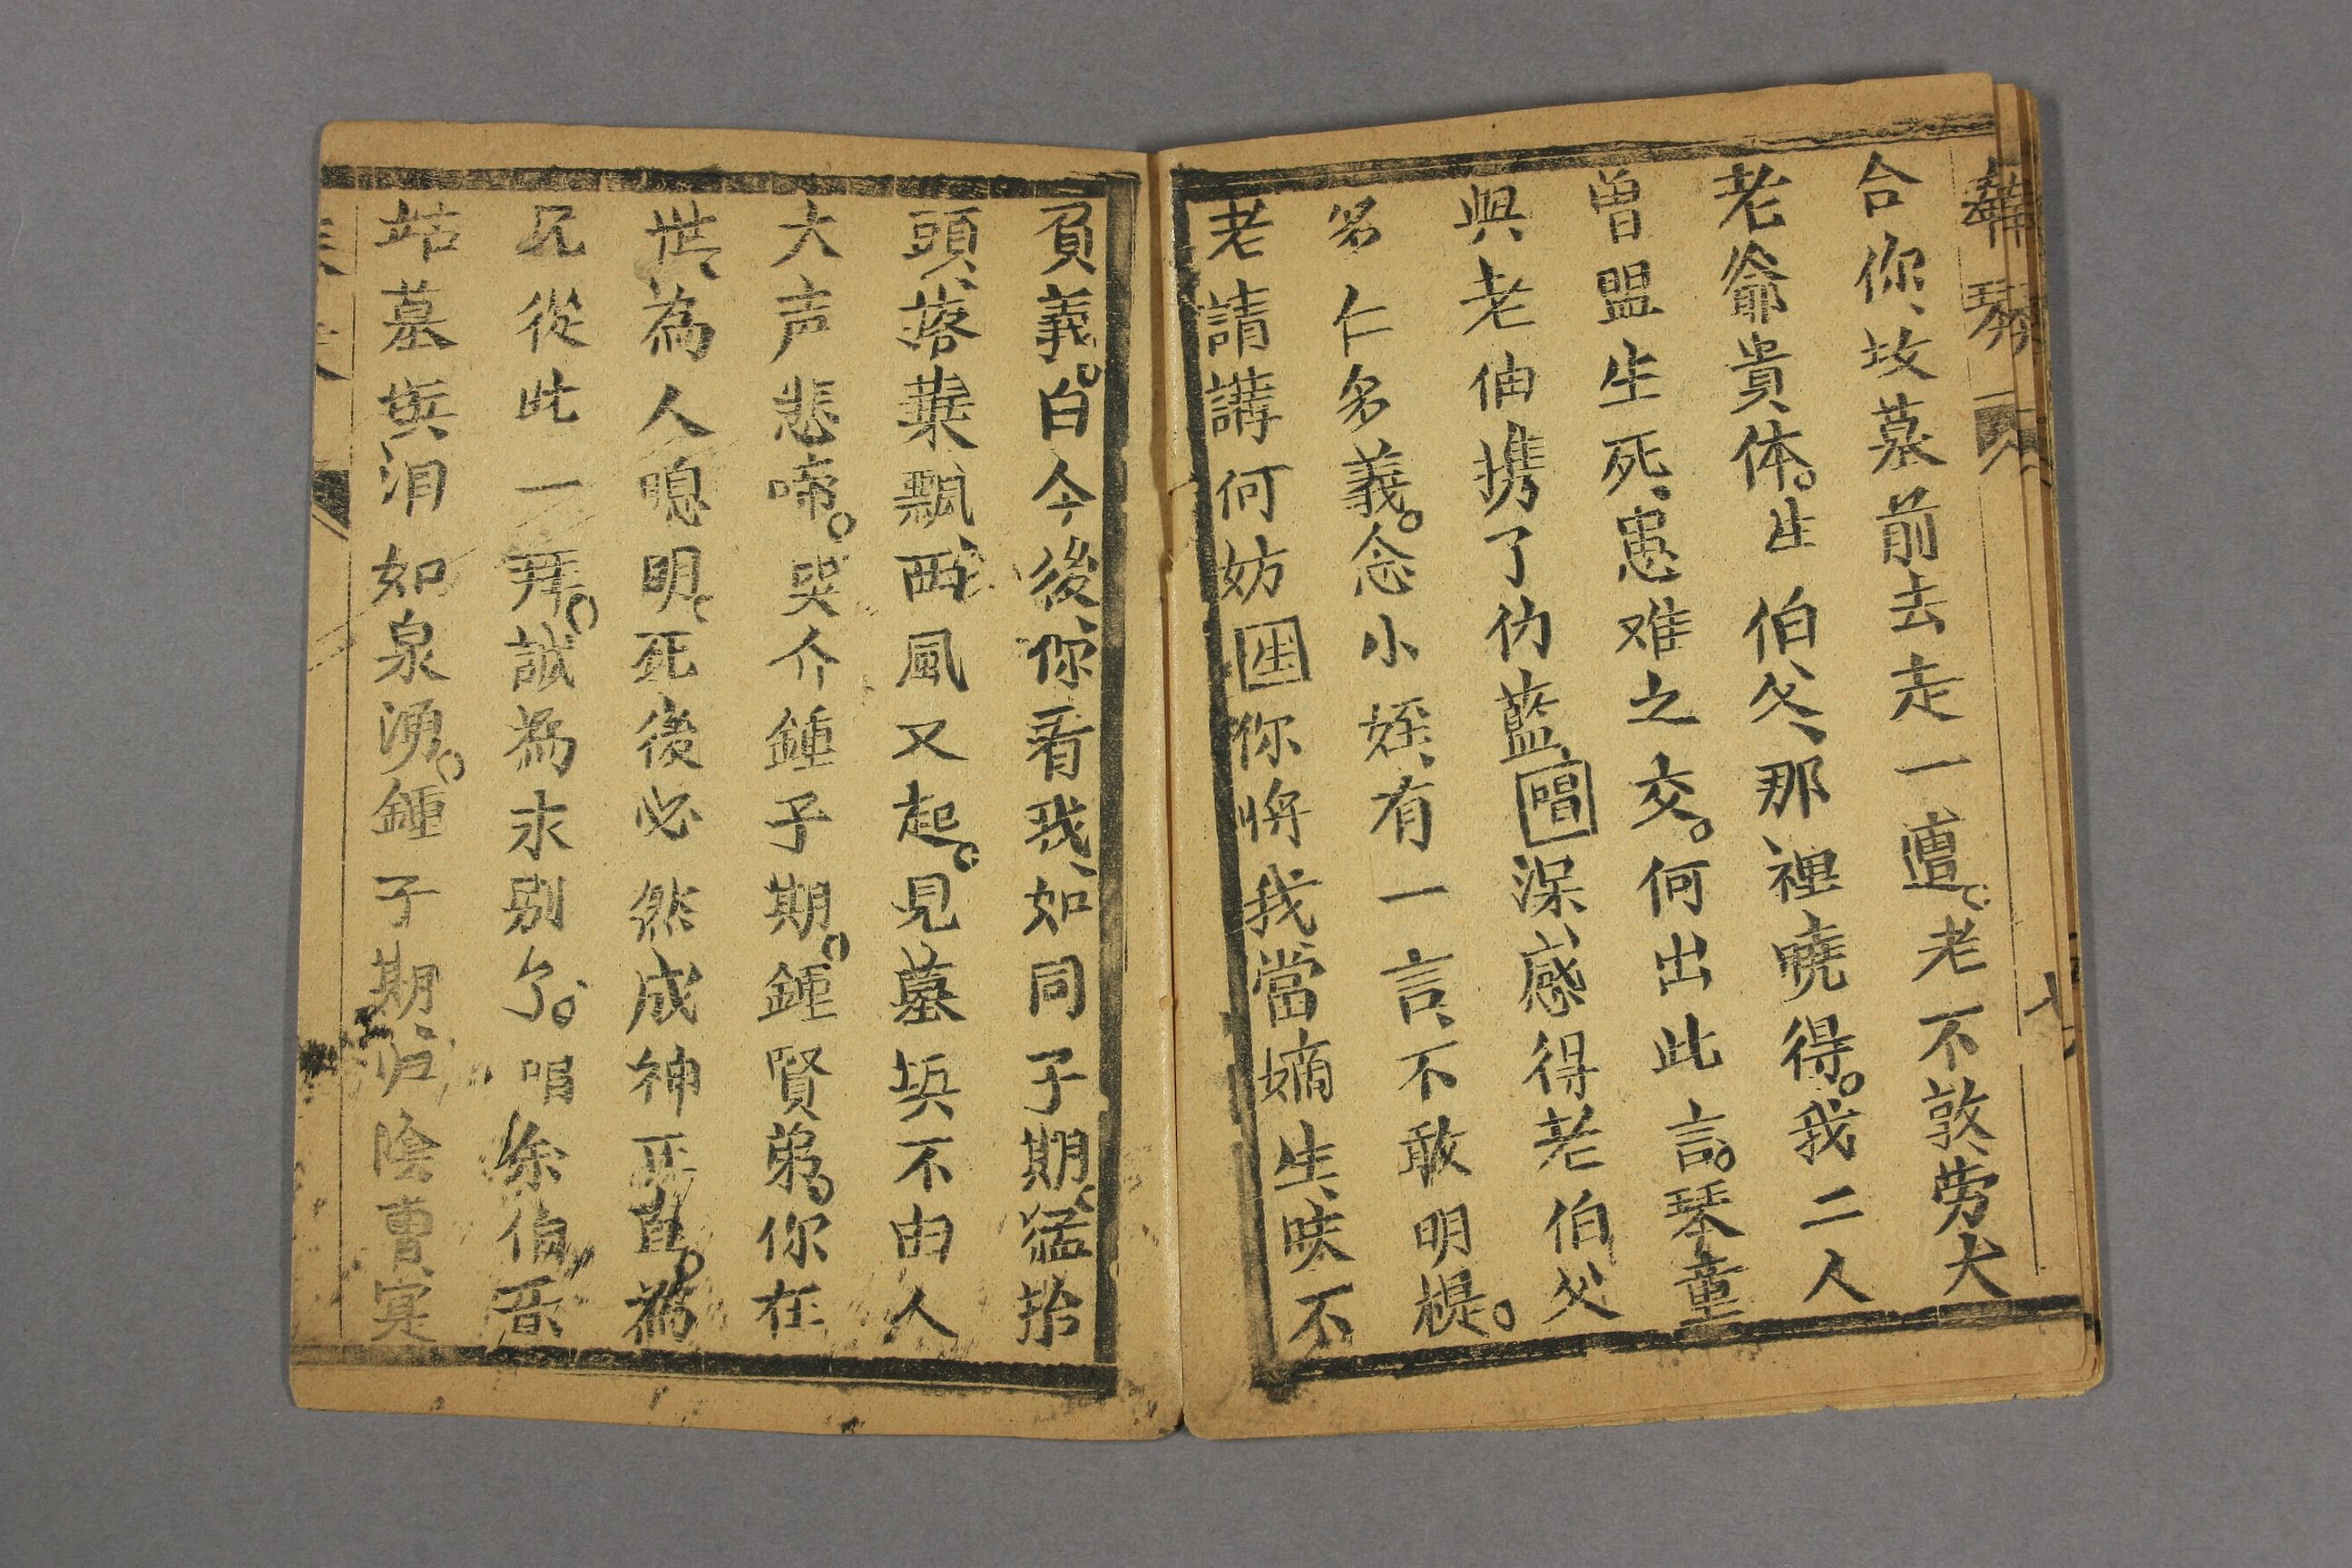 合你坟墓前去走一遭。老不敦劳大
老爺貴体。生伯父、那裡曉得。我二人
曽盟生死、患难之交。何出此言。琴童
與老伯携了伪藍、唱深感得老伯父
多仁多義。念小姪、有一言、不敢明提。
老請講何妨生你将我當嫡生、咲不
負義。白今後、你看我、如同子期、猛抬
頭、落葉飄、西風又起。見墓坟不由人
大声悲啼。哭介鍾子期。鍾賢弟。你在
世、為人聪明。死後必然成神正直。為
兄從此一拜。誠為永别了。唱俞伯牙
站墓坟泪如泉湧。鍾子期归陰曹